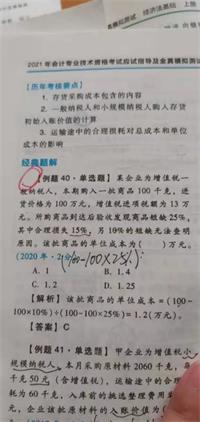 真模拟测试 经济法基础 上册
2021年会计专业技术资格考试应试指导及全真模拟测
【历年考核要点】
1. 存货采购成本包含的内容
2. 一般纳税人和小规模纳税人购入存货
初始入账价值的计算
3. 运输途中的合理损耗对总成本和单位
成本的影响
经典题解
【例题40·单选题】某企业为增值税一
般纳税人,本期购入一批商品100千克,进
货价格为100万元,增值税进项税额为13万
元。所购商品到达后验收发现商品短缺25%,
其中合理损失15%,另10%的短缺无法查明
原因。该批商品的单位成本为( )万元。
(2020年·2分)
(100-100×25%)
A. 1 B. 1.4
C. 1.2 D. 1.25
【解析】该批商品的单位成本=(100-
100×10%)÷(100-100×25%)=1.2(万元)。
【答案】C
【例题41·单选题】甲企业为增值税小
规模纳税人,本月采购原材料2060千克,每
千克50元(含增值税),运输途中的合理损
耗为60千克,入库前的挑选整理费用
元,企业该批原材料的入账价值为(